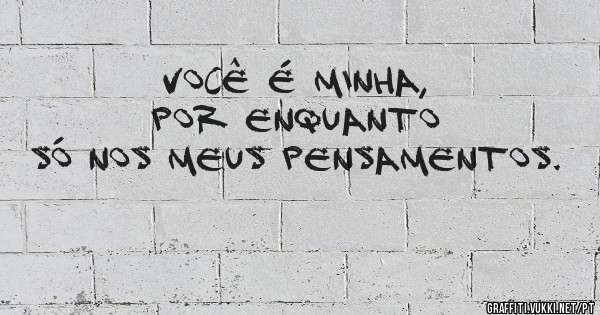 VOCÊ É MINHA,
POR ENQUANTO
SÓ NOS MEUS PENSAMENTOS.
GRAFFITI.VUKKI.NET/PT